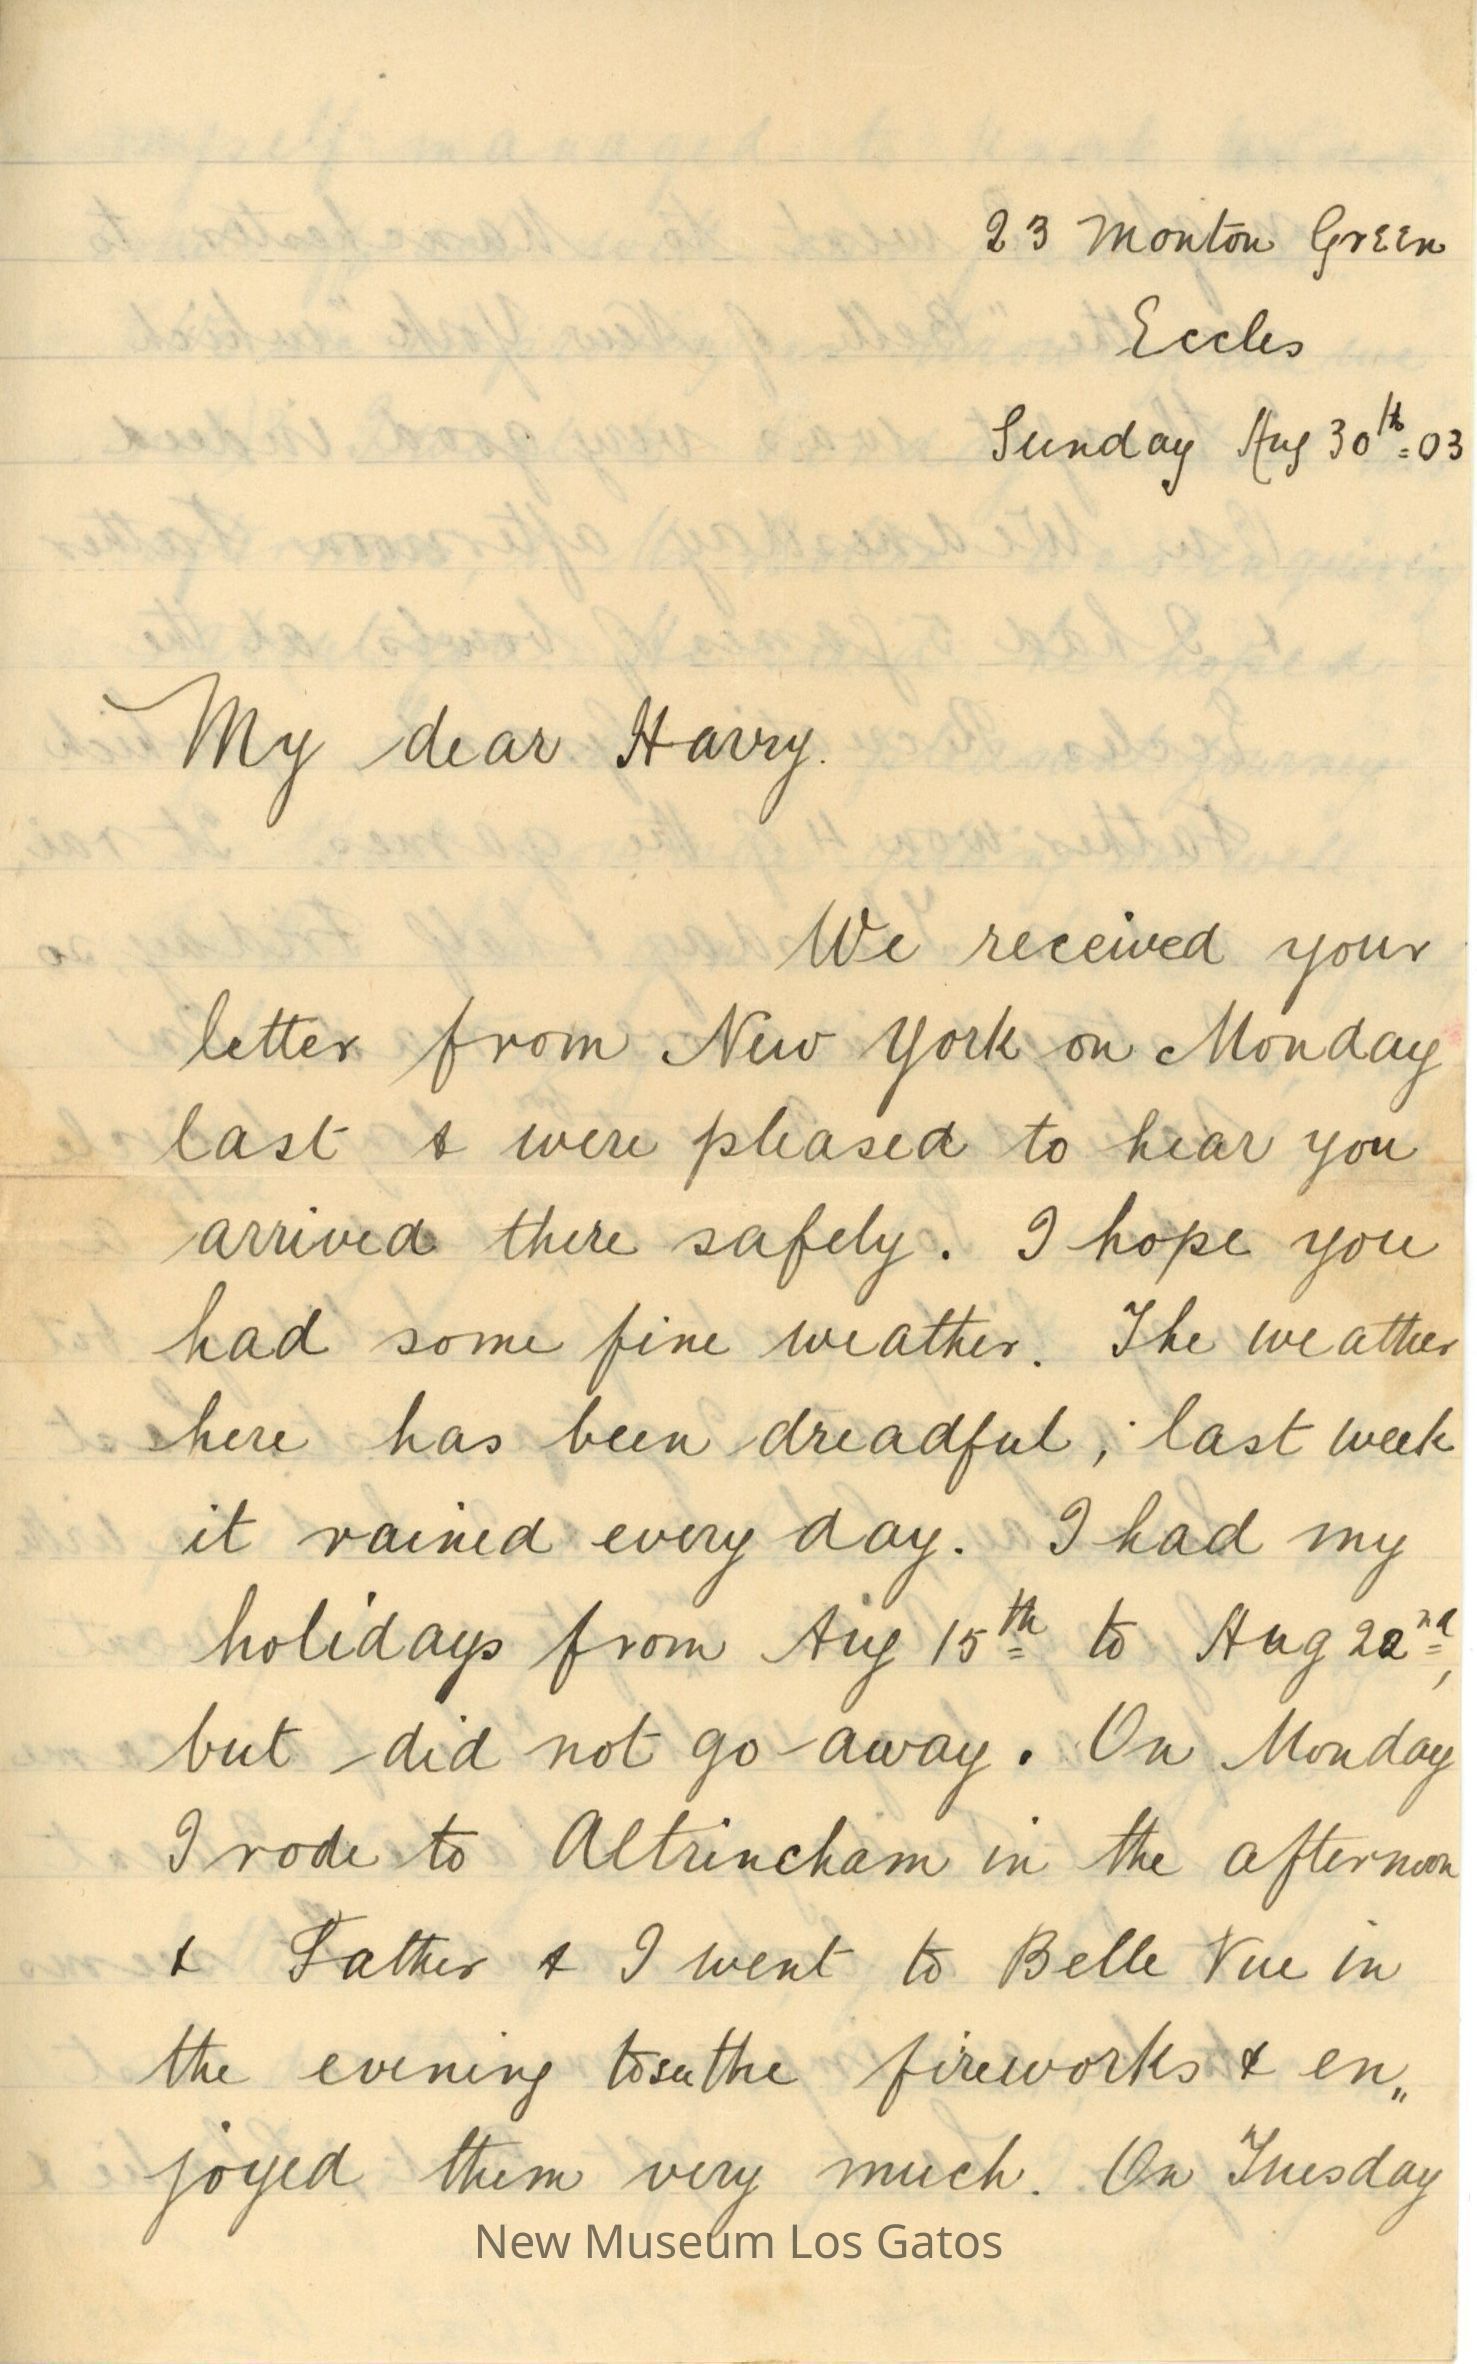 23 Monton Green
Eccles
Sunday Aug 30th = 03
My dear Harry.
We received your
letter from New York on Monday
last & were pleased to hear you
arrived there safely. I hope you
had some fine weather. The weather
here has been dreadful, last week
it rained every day. I had my
holidays from Aug 15th to Aug 22nd,
but did not go away. On Monday
I rode to Altrincham in the afternoon
& Father & I went to Belle Vue in
the evening to see the fireworks & en„
joyed them very much. On Tuesday
New Museum Los Gatos